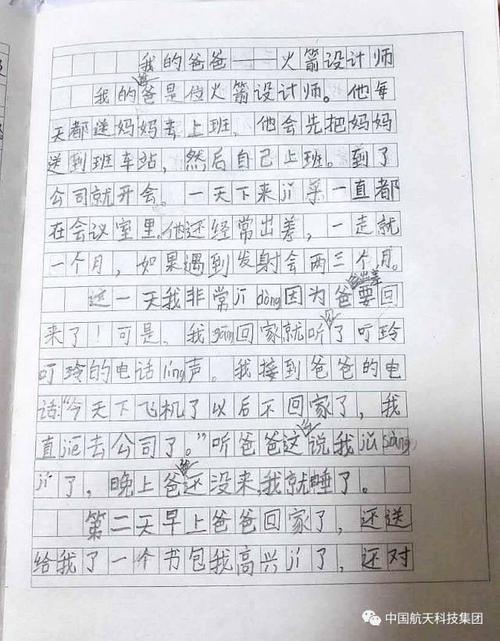 我的爸爸——火箭设计师
我的爸爸是位火箭设计师。他每
天都送妈妈去上班，他会先把妈妈
送到班车站，然后自己上班。到了
公司就开会。一天下来jī乎一直都
在会议室里。他还经常出差，一走就
一个月，如果遇到发射会两三个月。
这一天我非常jī dòng因为爸爸出差要回
来了！可是，我gāng回家就听到了叮玲
叮玲的电话líng声。我接到爸爸的电
话：“今天下飞机了以后不回家了，我
直jiē去公司了。”听爸爸这么说我jǔ sàng
jí了，晚上爸爸还没来，我就睡了。
第二天早上爸爸回家了，还送
给我了一个书包我高兴jí了，还对
中国航天科技集团